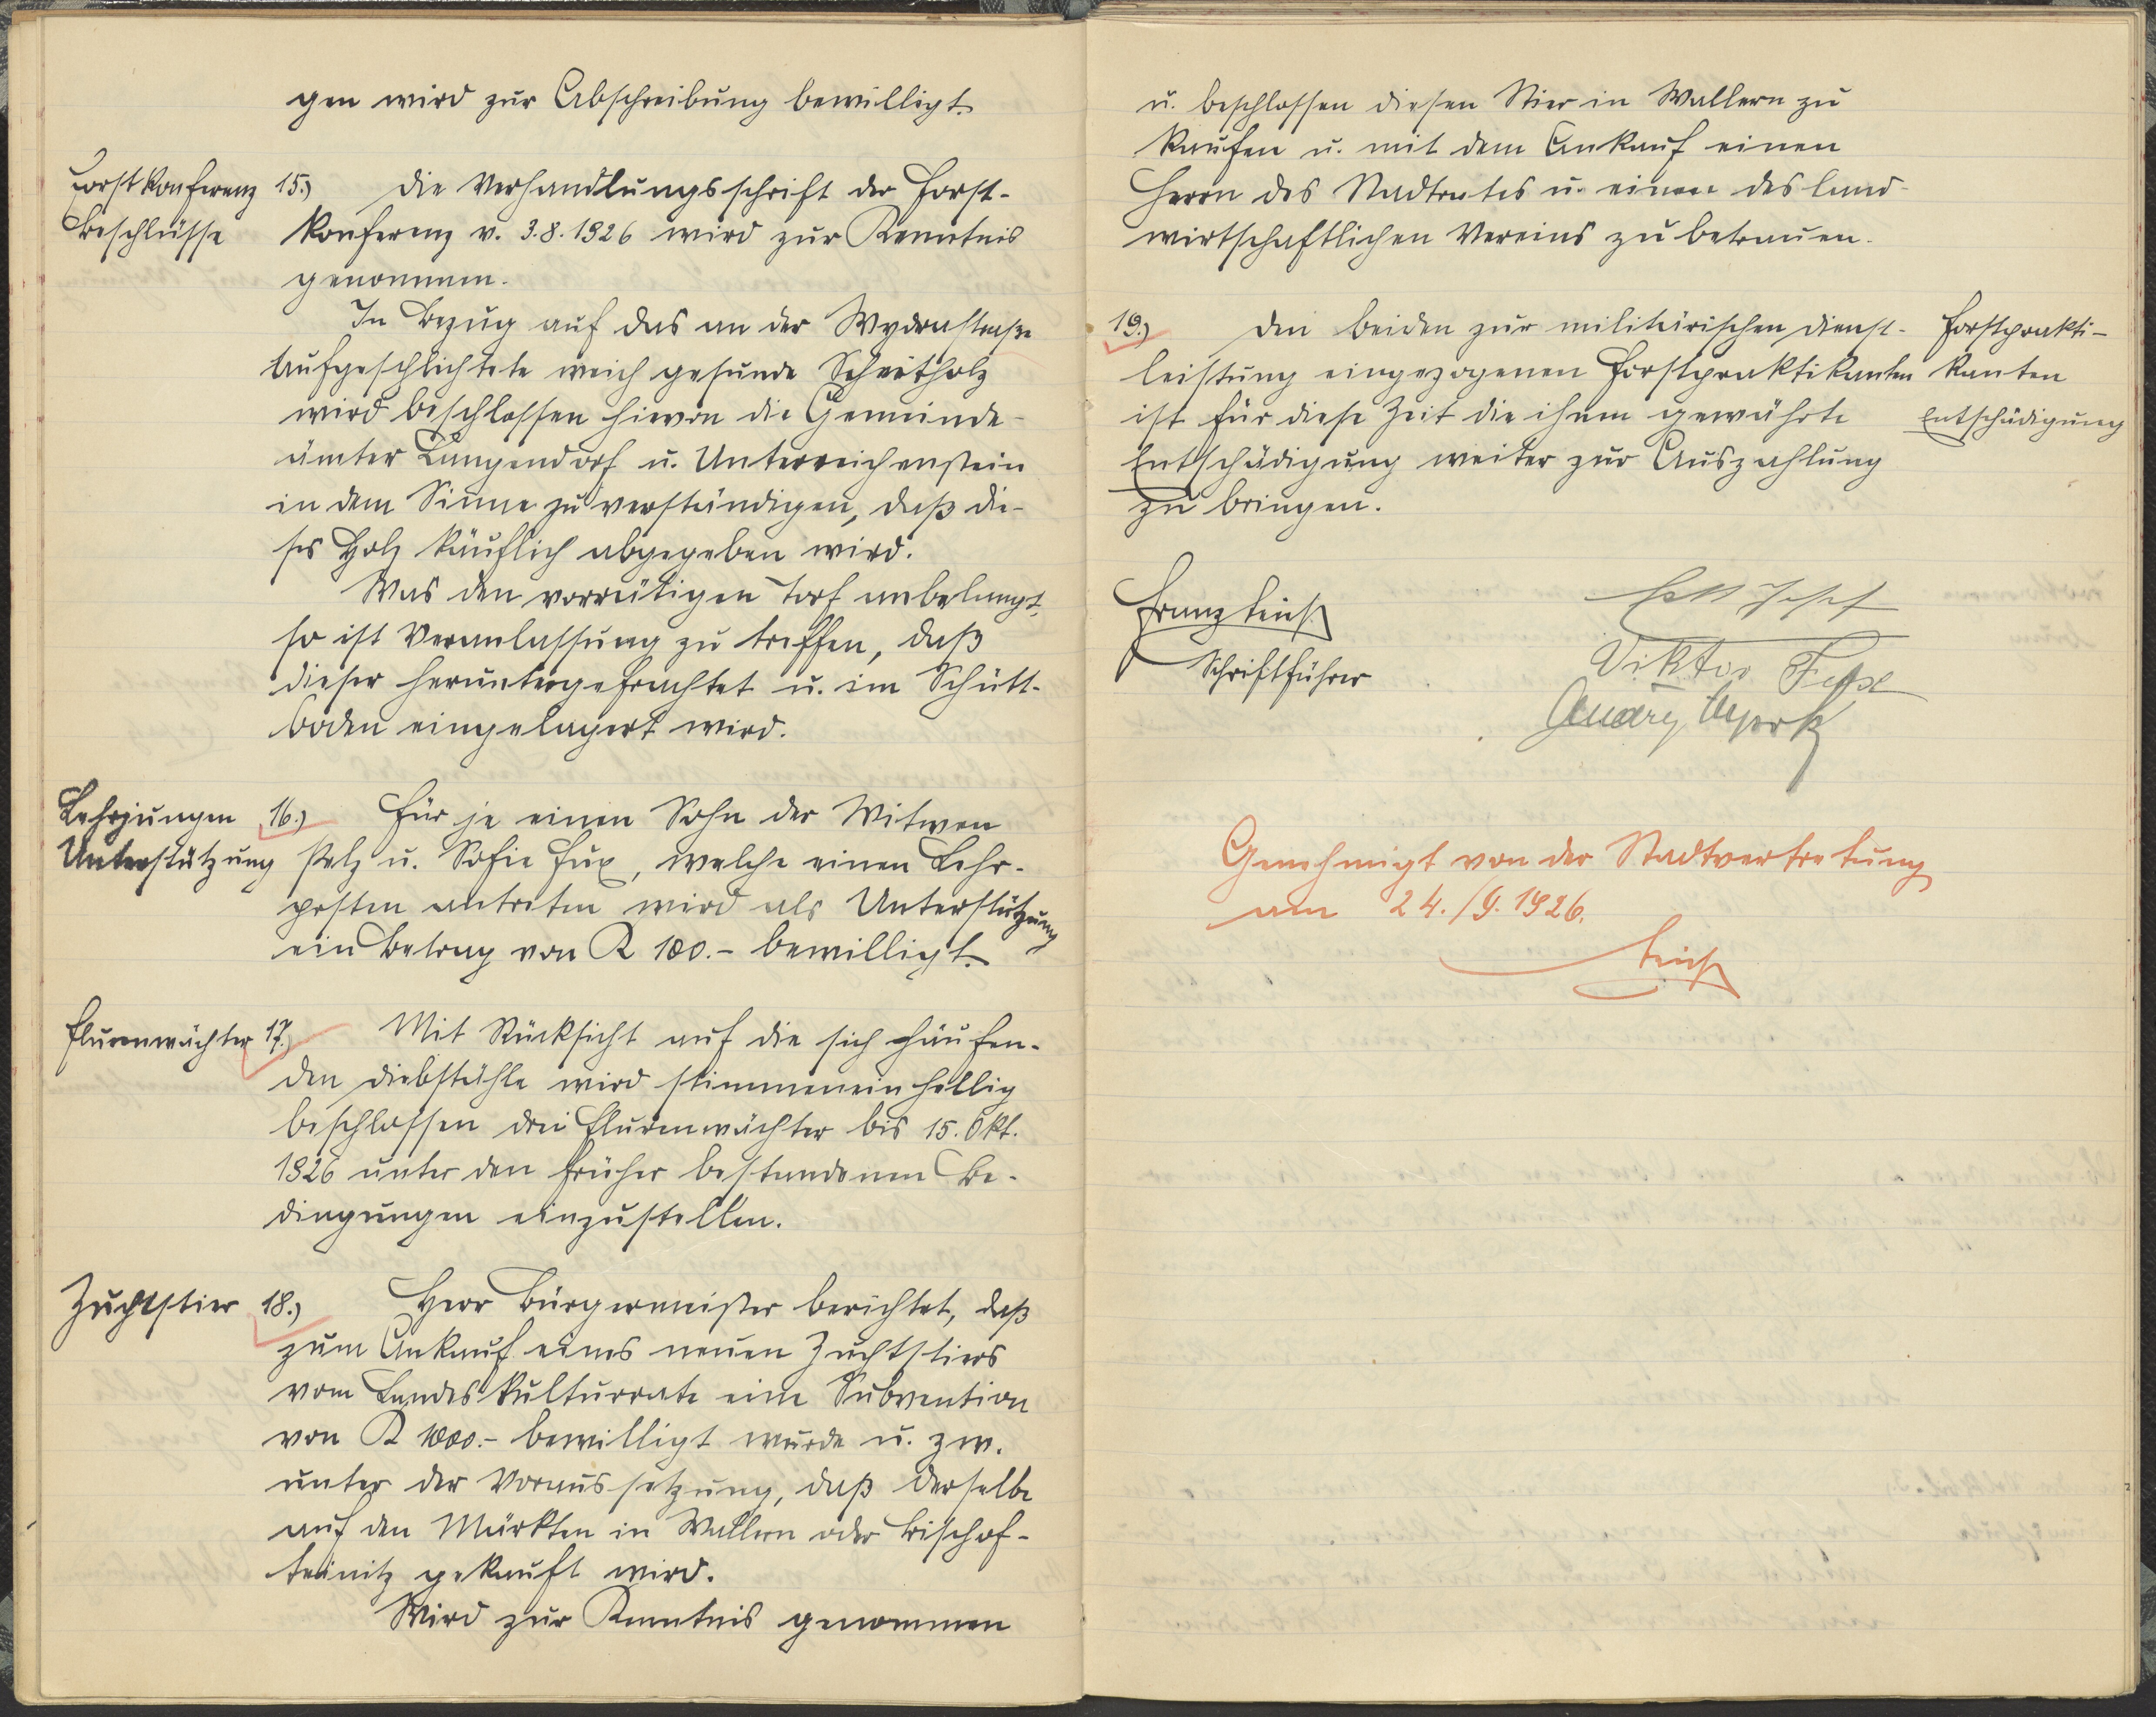 gen wird zur Abschreibung bewilligt.
Forstkonferenz 15.) Die Verhandlungsschrift der Forst-
Beschlüsse konferenz v. 3.8.1926 wird zur Kenntnis
genommen.
In Bezug auf das an der Wydrastraße
aufgeschlichtete weich gesunde Scheitholz
wird beschlossen hievon die Gemeinde-
ämter Langendorf u. Unterreichenstein
in dem Sinne zu verständigen, daß die-
ses Holz käuflich abgegeben wird.
Was den vorrätigen Torf anbelangt,
so ist Veranlassung zu treffen, daß
dieser heruntergefrachtet u. im Schütt-
boden eingelagert wird.
Lehrjungen 16.) Für je einen Sohn der Witwen
Unterstützung Pelz u. Sofie Fux, welche einen Lehr-
posten antreten wird als Unterstützung
ein Betrag von K 100.- bewilligt.
Flurenwächter 17.) Mit Rücksicht auf die sich häufen-
den Diebstähle wird stimmeneinhellig
beschlossen drei Flurenwächter bis 15. Okt.
1926 unter den früher bestandenen Be-
dingungen einzustellen.
Zuchtstier 18.) Herr Bürgermeister berichtet, daß
zum Ankauf eines neuen Zuchtstiers
vom Landeskulturrate eine Subvention
von K 1000.- bewilligt wurde u. zw.
unter der Voraussetzung, daß derselbe
auf den Märkten in Wallern oder Bischof-
teinitz gekauft wird.
Wird zur Kenntnis genommen
u. beschlossen diesen Stier in Wallern zu
kaufen u. mit dem Ankauf einen
Herrn des Stadtrates u. einen des land-
wirtschaftlichen Vereins zu betrauen.
19.) Den beiden zur militärischen Dienst- Forstprakti-
leistung eingezogenen Forstpraktikanten kanten
ist für diese Zeit die ihnen gewährte Entschädigung
Entschädigung weiter zur Auszahlung
zu bringen.
Franz
Josef
Schriftführer
Viktor
Genehmigt von der Stadtvertretung
am 24./9.1926.